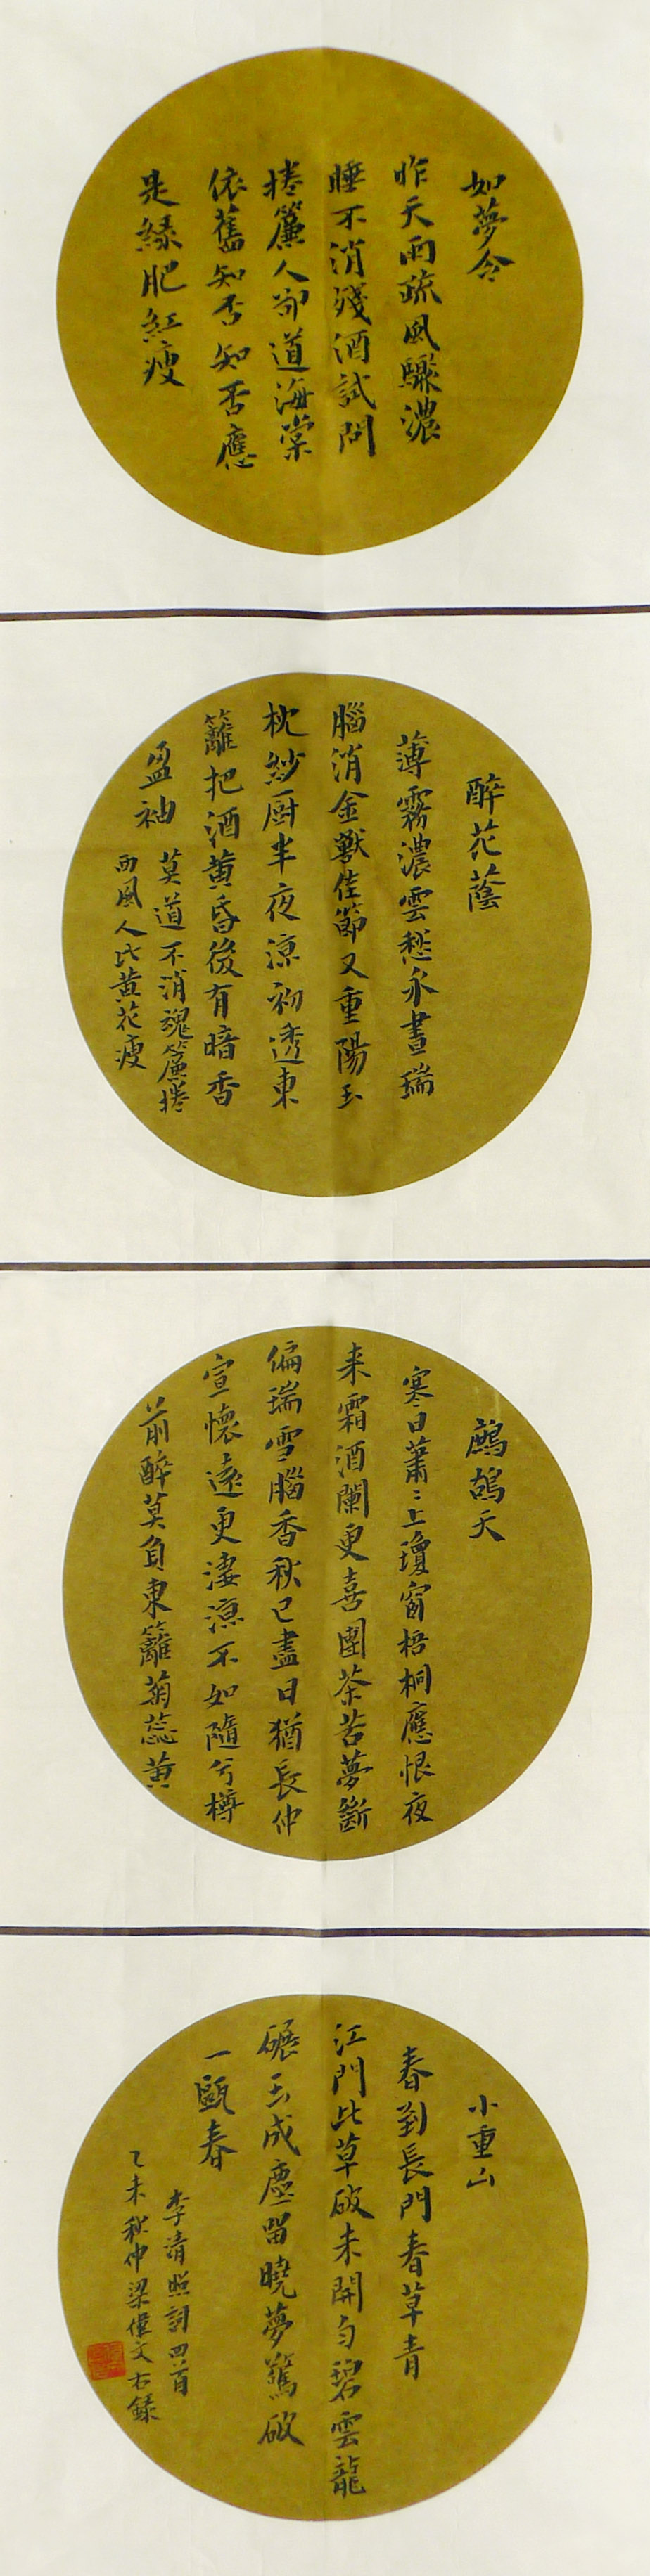 如夢令
昨天雨疏風驟濃
睡不消殘酒試問
捲簾人卻道海棠
依舊知否知否應
是綠肥紅瘦
醉花蔭
薄霧濃雲愁永晝瑞
腦消金獸佳節又重陽玉
枕紗厨半夜涼初透東
籬把酒黄昏後有暗香
盈袖
莫道不消魂簾捲
西風人比黄花瘦
鷓鴣天
寒日蕭〻上瓊窗梧桐應恨夜
来霜酒闌更喜團茶苦夢斷
偏瑞雪腦香秋已盡日猶長仲
宣懷遠更淒涼不如隨兮樽
前醉莫負東籬菊蕊黄
小重山
春到長門春草青
江門比草破未開勻碧雲龍
碾玉成塵留曉夢驚破
一甌春
李清照詞四首
乙未秋仲梁偉文右錄